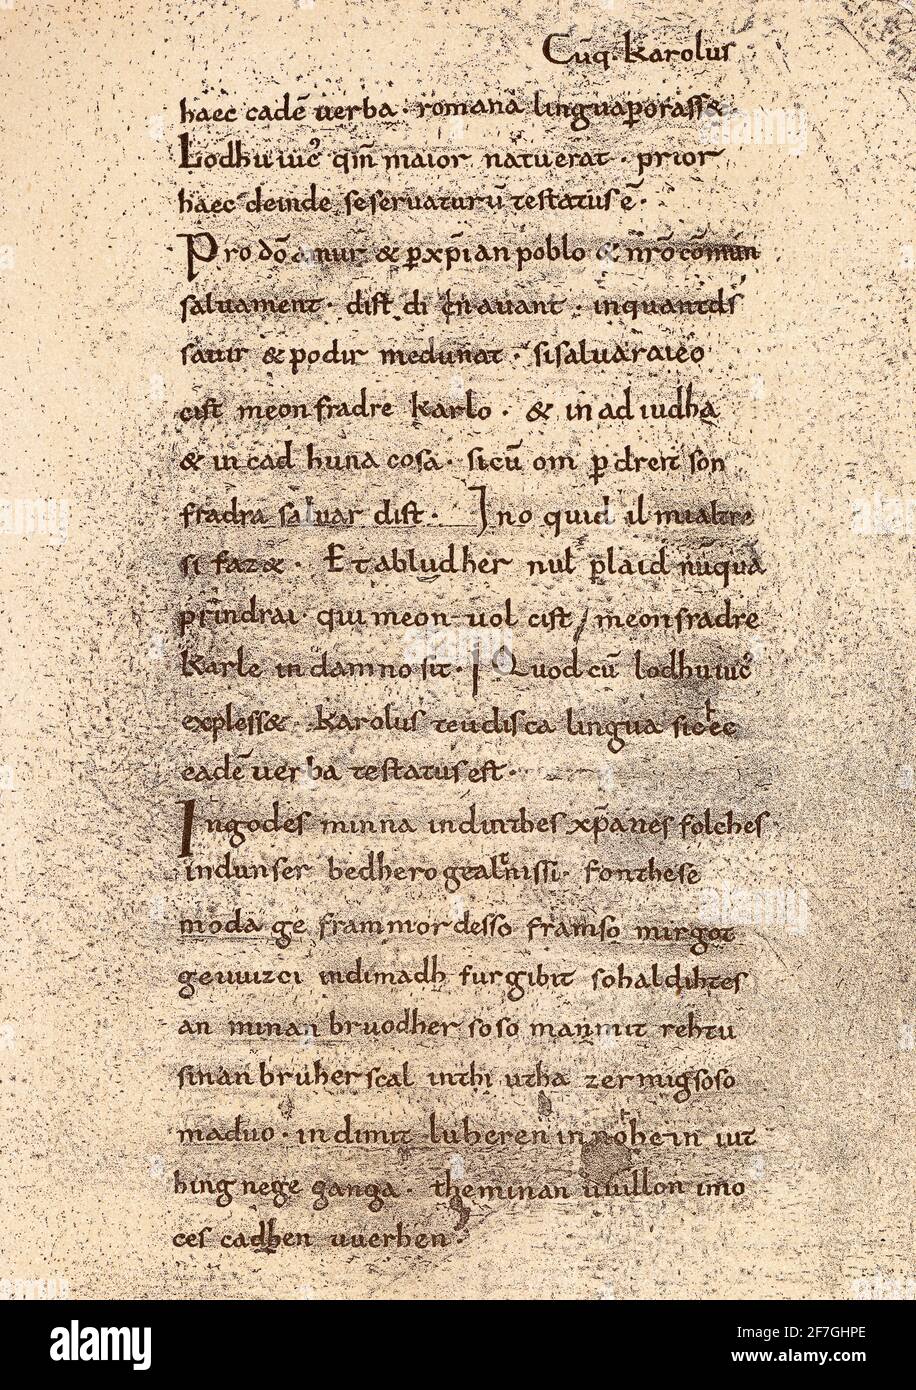 Cūq· Karolus
haec cadē uerba· romana linguaꝑorass&·
Lodhuuic̉ qm̄ maior natuerat· prior
haec deinde seseruaturū testatusē·
Prodōamur & ꝑxp̄ian poblo & nr̄ōcōmun
saluament· dist di ēnauant· inquantdś
sauir & podir medunat· sisaluaraieo
cist meonfradre Karlo· & in ad iudha
& in cad huna cosa· sicū om ꝑ dreit son
fradra saluar dist· Ino quid il mialtre
si faz&· Et abludher nul plaid nūqua
prindrai· qui meon uol cist meonfradre
Karle in damno sit· Quodcū lodhuuic̉
expless&· Karolus teudisca lingua sic hec
eadē uerba testatusest·
Ingodes minna indinthes xp̄anes folches
indunser bedhero gealtnissi· fonthese
moda ge frammordesso framso mirgot
geuuizci indimadh furgibit sohaldihtes
an minan bruodher soso manmit rehtu
sinan bruher scal inthi utha zermigsoso
maduo· indimit luheren in nohein iut
hing nege ganga· theminan uuillon imo
ces cadhen uuerhen·
alamy
Image ID: 2F7GHPE
www.alamy.com